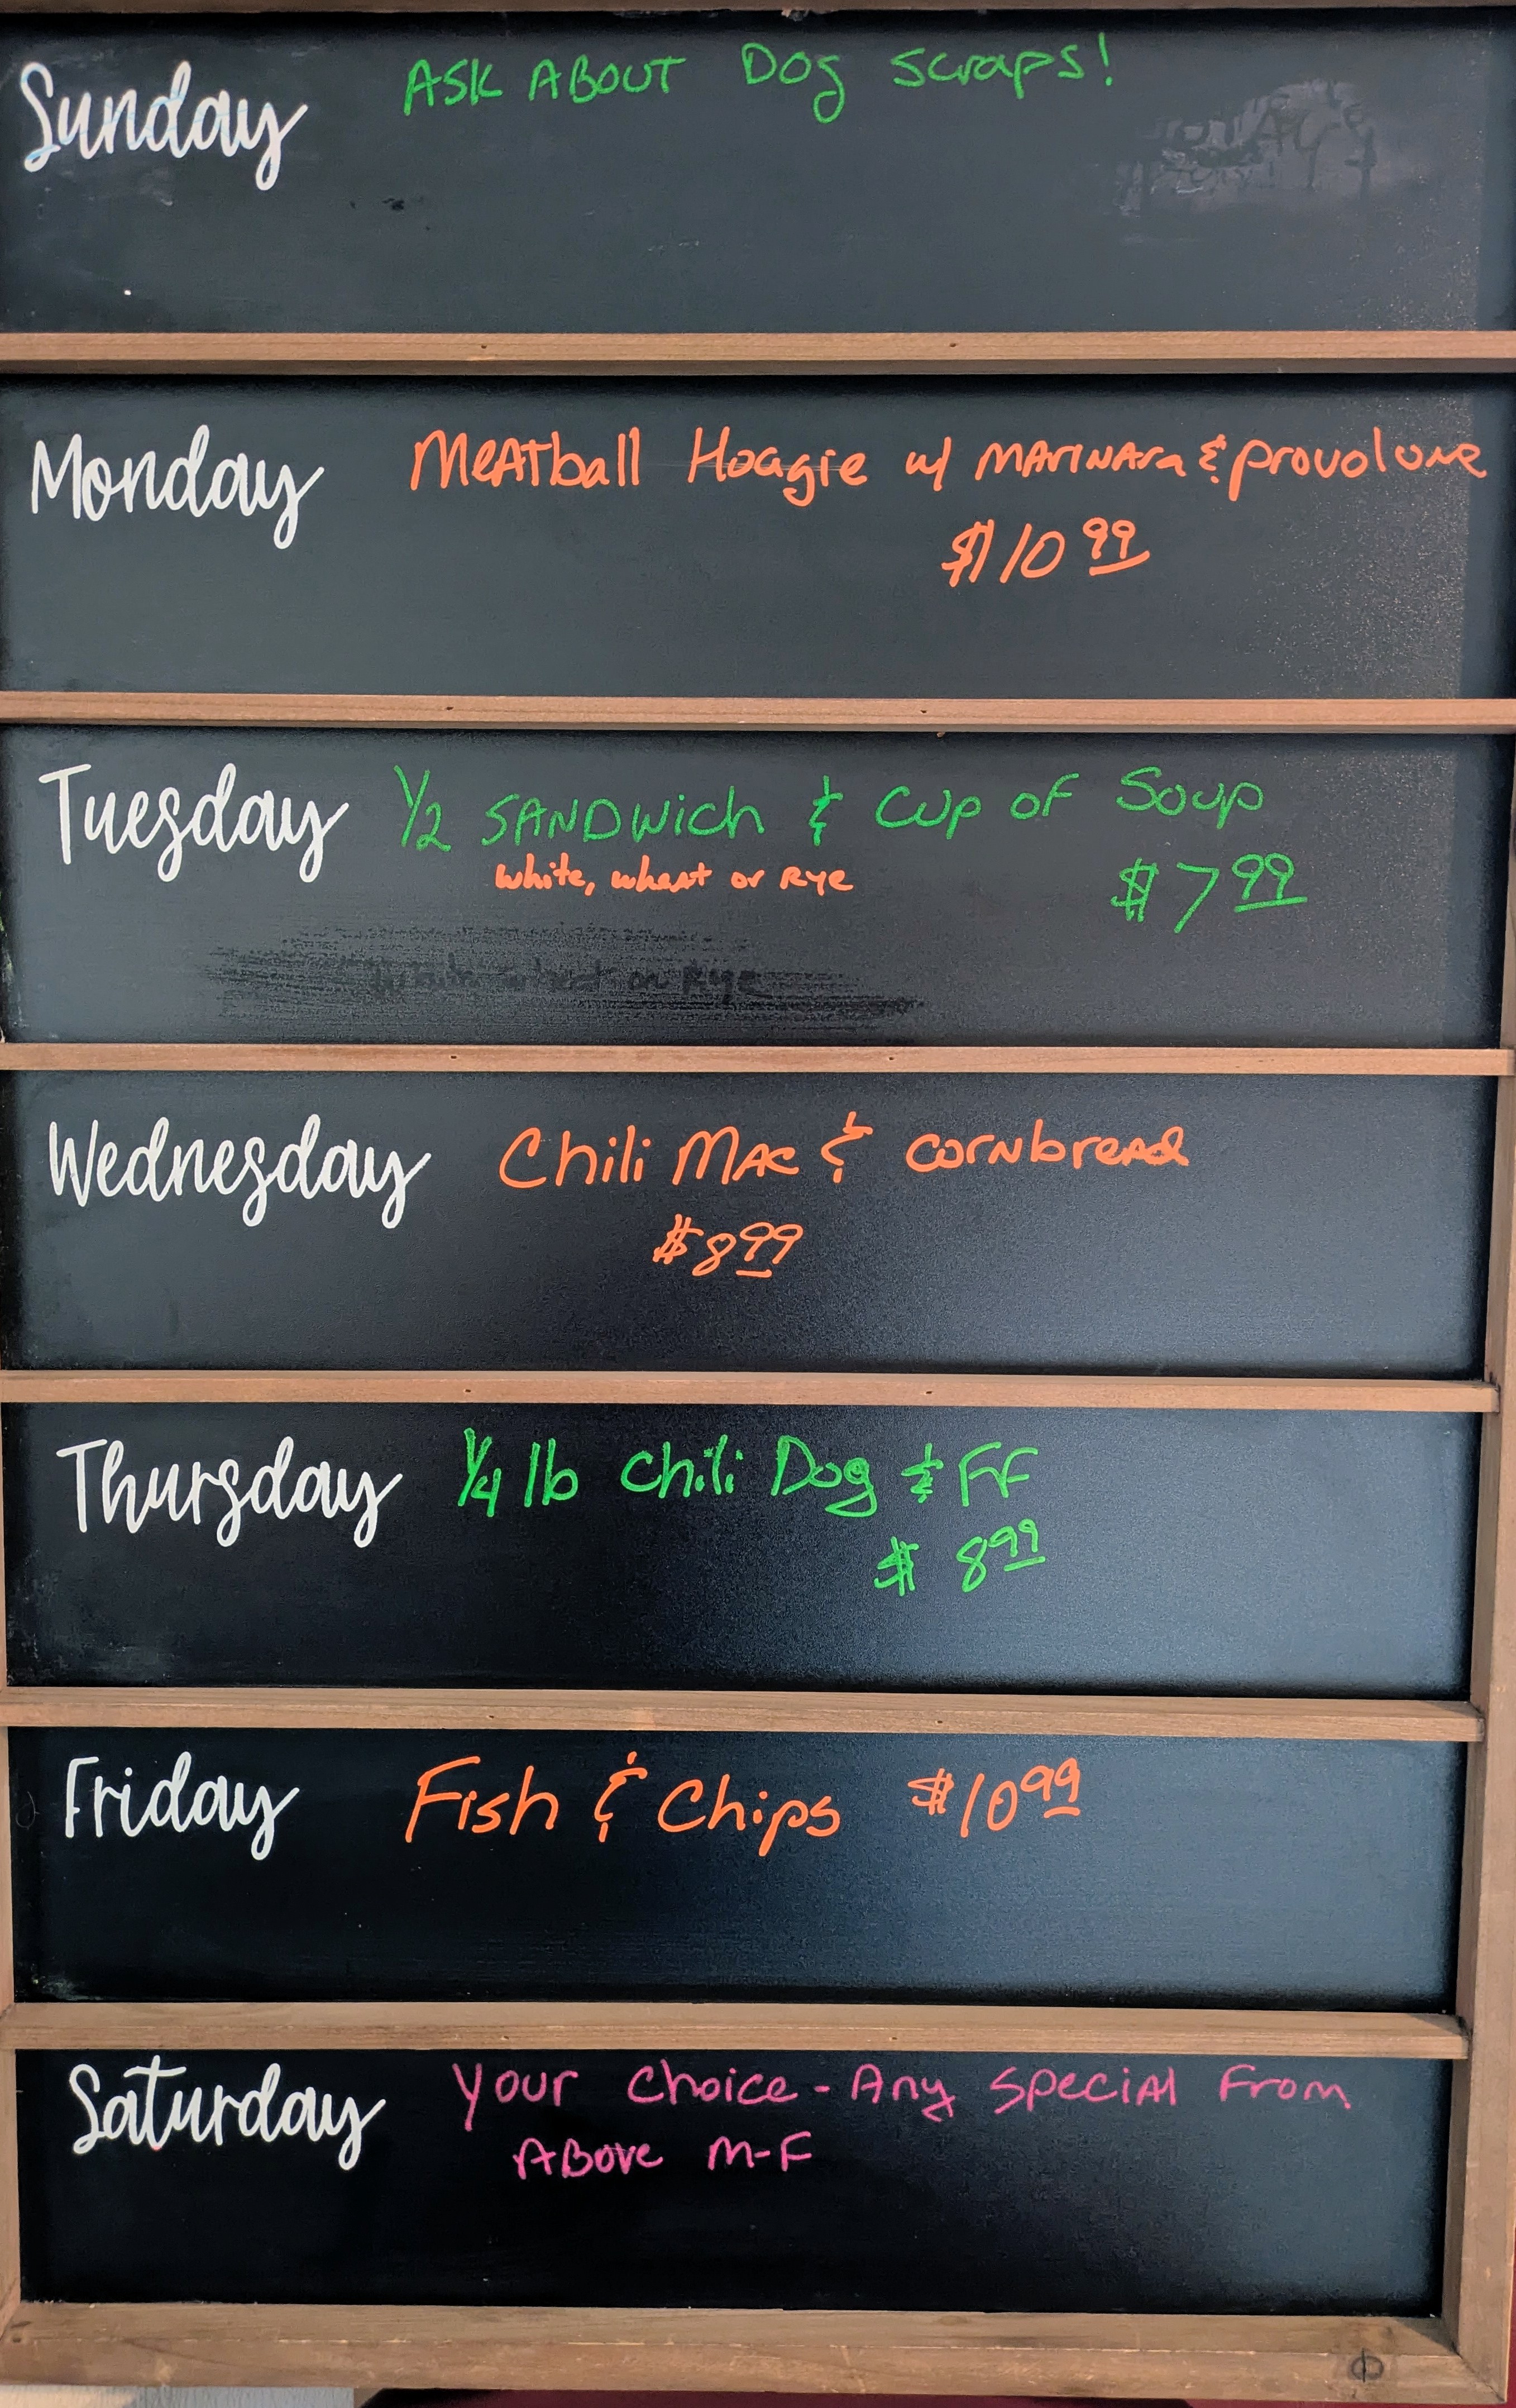 Sunday
ASK ABOUT Dog scraps!
Monday
Meatball Hoagie w/ MARINARA & provolone
$10 99
Tuesday
1/2 SANDWich & Cup of Soup
white, wheat or Rye
$7 99
Wednesday
Chili MAC & cornbread
$8 99
Thursday
1/4 lb Chili Dog & FF
$ 8 99
Friday
Fish & Chips $10 99
Saturday
Your Choice - Any Special From
Above M-F